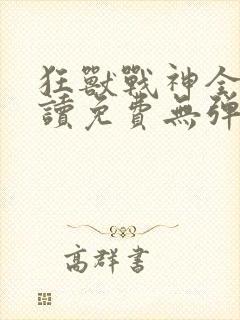 狂獸戰神全
讀免費無彈
高群書